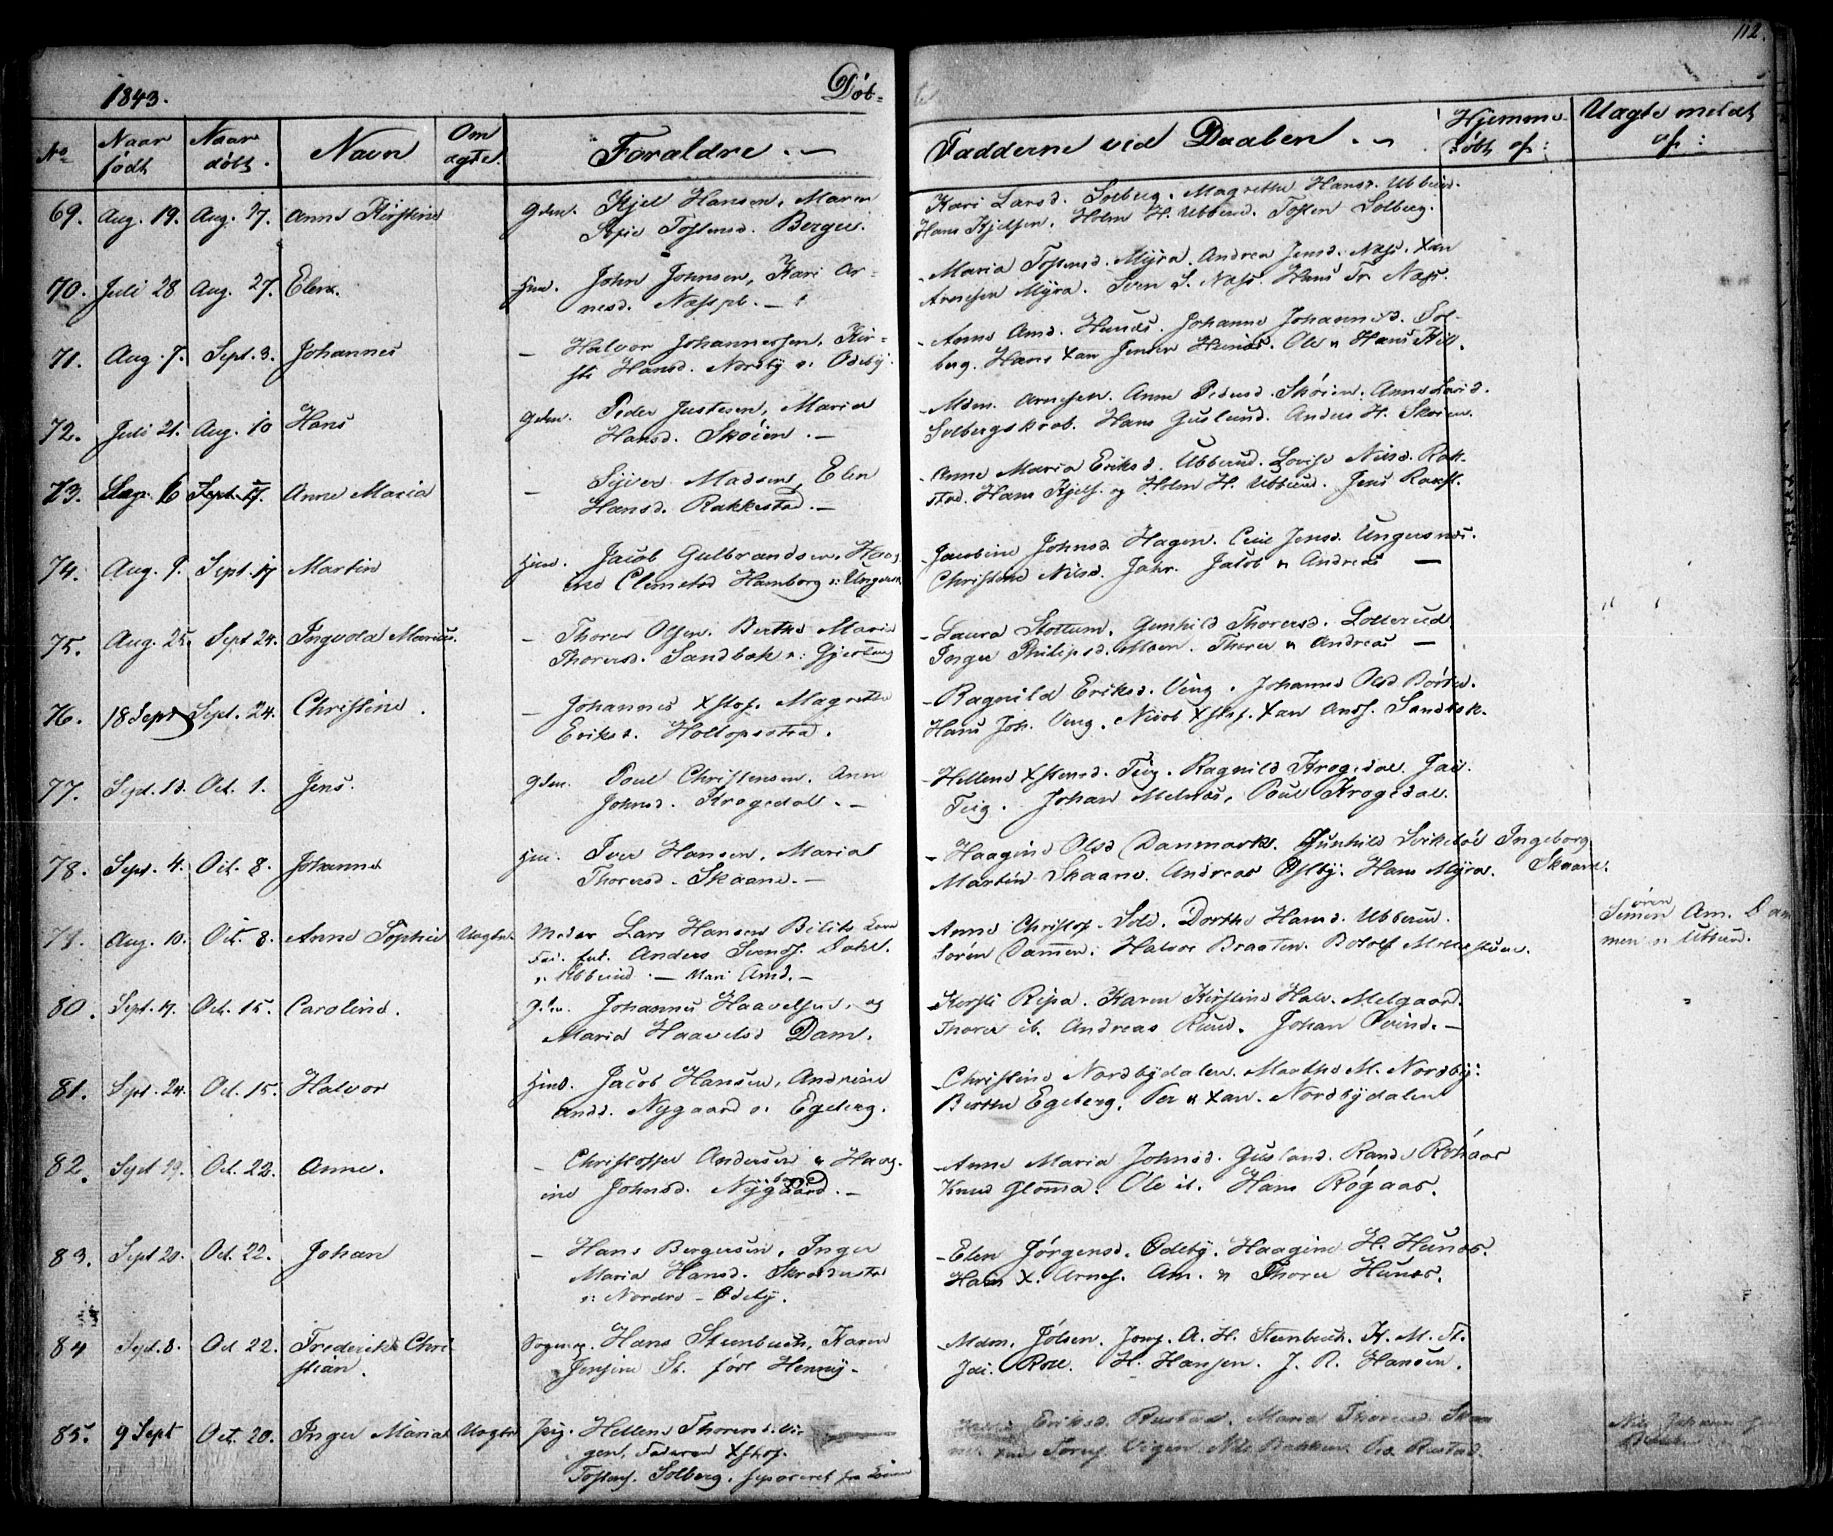 112.
1843.
Døb-
te
No
Naar født
Naar døbt.
Navn
Om ægte.
Forældre. —
Fadderne ved Daaben. —
Hjemme døbt af:
Uægte meldt af:
69. Aug. 19. Aug. 27. Anne Kirstine Gdm. Kjel Hansen, Maren
Sofie Tostensd. Berger.
Kari Larsd. Solberg. Magrethe Hansd. Ubberud.
Hans Kjelsen, Holm H. Ubberud. Tosten Solberg.
70. Juli 28 Aug. 27. Elen. Hmd. John Johnsen, Kari Ar-
nesd. Næsspl. —
Maria Tostensd. Myra. Andrea Jensd. Næss. Xan
Arnesen Myra. Sven S. Næss. Hans Tr. Næss.
71. Aug. 7. Sept. 3. Johannes — Halvor Johannessen, Kir-
sti Hansd. Nordby v: Odeby.
Anne Amd. Hunæs. Johanne Johannesd. Sol-
berg. Hans Xan Jensen Hunæs. Ole & Hans
72. Juli 21. Aug. 10 Hans Gdm. Peder Justesen, Maria
Hansd. Skøien. —
Mdm. Arnesen. Anne Pedersd. Skøien. Anne Larsd.
Solbergskrob. Hans Guslund. Anders H. Skøien.
73. 6 Sept. 17. Anne Maria — Syver Madsen, Elen
Hansd. Rakkestad. —
Anne Maria Eriksd. Ubberud. Lovise Nilsd. Rak-
stad. Hans Kjels. og Holm H. Ubberud. Jens Rakst.
74. Aug. 9. Sept. 17 Martin Hmd. Jacob Gulbrandsen, Haag
ine Clemetsd Hamborg v: Ungersn.
Jacobine Johnsd. Hagen. Jensd. Ungersnæs.
Christine Nilsd. Jahr. Jacob & Andreas —
75. Aug. 25. Sept 24. Ingvold Marius. — Thorer Olsen. Berthe Maria
Thorersd. Sandbæk v:
Laura Slottum. Gunhild Thorersd. Lotterud
Inger Philipsd. Moen. Thorer & Andreas —
76. 18 Sept Sept. 24. Christine. — Johannes Xstof. Magrethe
Eriksd. Holtopsstra.
Ragnild Eriksd. Ving. Johanne Olsd
Hans Joh. Ving. Xstof. Xan Ands. Sandbæk.
77. Sept. 13. Oct. 1. Jens. Gdm. Poul Christensen. Anne
Johnsd. Krogedal. —
Hellene Xstensd. Teig. Ragnild Krogedal.
Teig. Johan Melnæs, Poul Krogedal.
78. Sept. 4. Oct. 8. Johanne Hmd. Iver Hansen, Maria
Thorersd. Skaane. —
Haagine Olsd Danmark. Gunhild Ingeborg
Martin Skaane. Andreas Østby. Hans Myra. Skaane.
79. Aug. 10. Oct. 8. Anne Sophie Uægte. Moder Lars Hansen
Anders Svends. Dahl.
v. Ubberud. — Mari Amd. —
Anne Christof. Sole. Dorthe Hansd. Ubberud.
Søren Dammen. Halvor Braaten. Botolf
Søren Am. Dam
men v: Ubberud.
80. Sept. 17. Oct. 15. Caroline. Gdm. Johannes Haavelsen, og
Maria Haavelsd Dam.
Kirsti Ripa. Karen Kirstine Halv. Melgaard.
Thorer ib. Andreas Ruud. Johan Øvind. —
81. Sept. 24. Oct. 15. Halvor Hmd. Jacob Hansen, Andrine
Andd. Nygaard v: Egeberg.
Christine Nordbydalen. Marthe M. Nordby.
Berthe Egeberg. Per & Xan. Nordbydalen
82. Sept 19. Oct. 22. Anne. — Christoffer Andersen & Haag-
ine Johnsd. Nygaard. —
Anne Maria Johnsd. Guslund. Rande Røgaas
Knud Glomma. Ole ib. Hans Røgaas.
83. Sept 20. Oct. 22. Johan — Hans Bergersen, Inger
Maria Hansd. Skrædderstad
v: Nordre - Odeby.
Elen Jørgensd. Odeby. Haagine H. Hunæs.
Hans X. Arnes. Am. & Thorer Hunæs.
84 Sept. 8. Oct. 22. Frederik Chri
stian. Sogne Hans Steenbuch, Karen
Jensine St. født Henny -
Mdm. Jølsen. Jomf. A. H. Steenbuch. K. M. St.
H. Hansen. J. R. Hansen.
85. 9 Sept Oct. 20. Inger Maria Uægte Pig. Hellene Thorersd. Vi-
gen, Faderen Xstof.
Tostens. Solberg, separeret fra Konen
Eriksd. Rustad. Maria Thorersd.
Xan Tores. Vigen. Nils Bakken. Rustad.
Nils Johannesen
Bakken